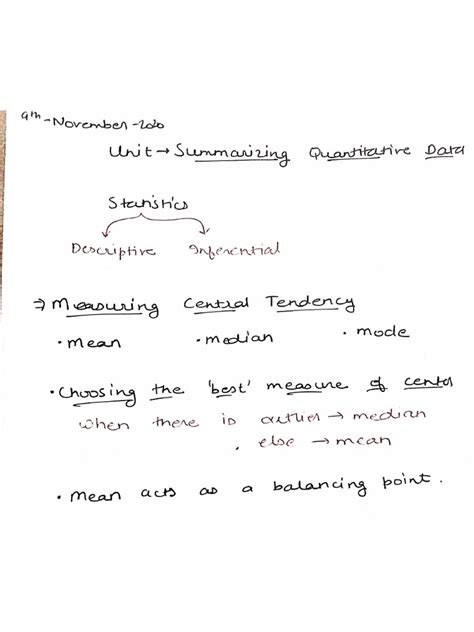 9th - November - 2020
Unit → Summarizing Quantitative Data
Statistics
Descriptive Inferential
⇒ Measuring Central Tendency
• mean • median • mode
• Choosing the 'best' measure of center
when there is outlier → median
• else → mean
• Mean acts as a balancing point.